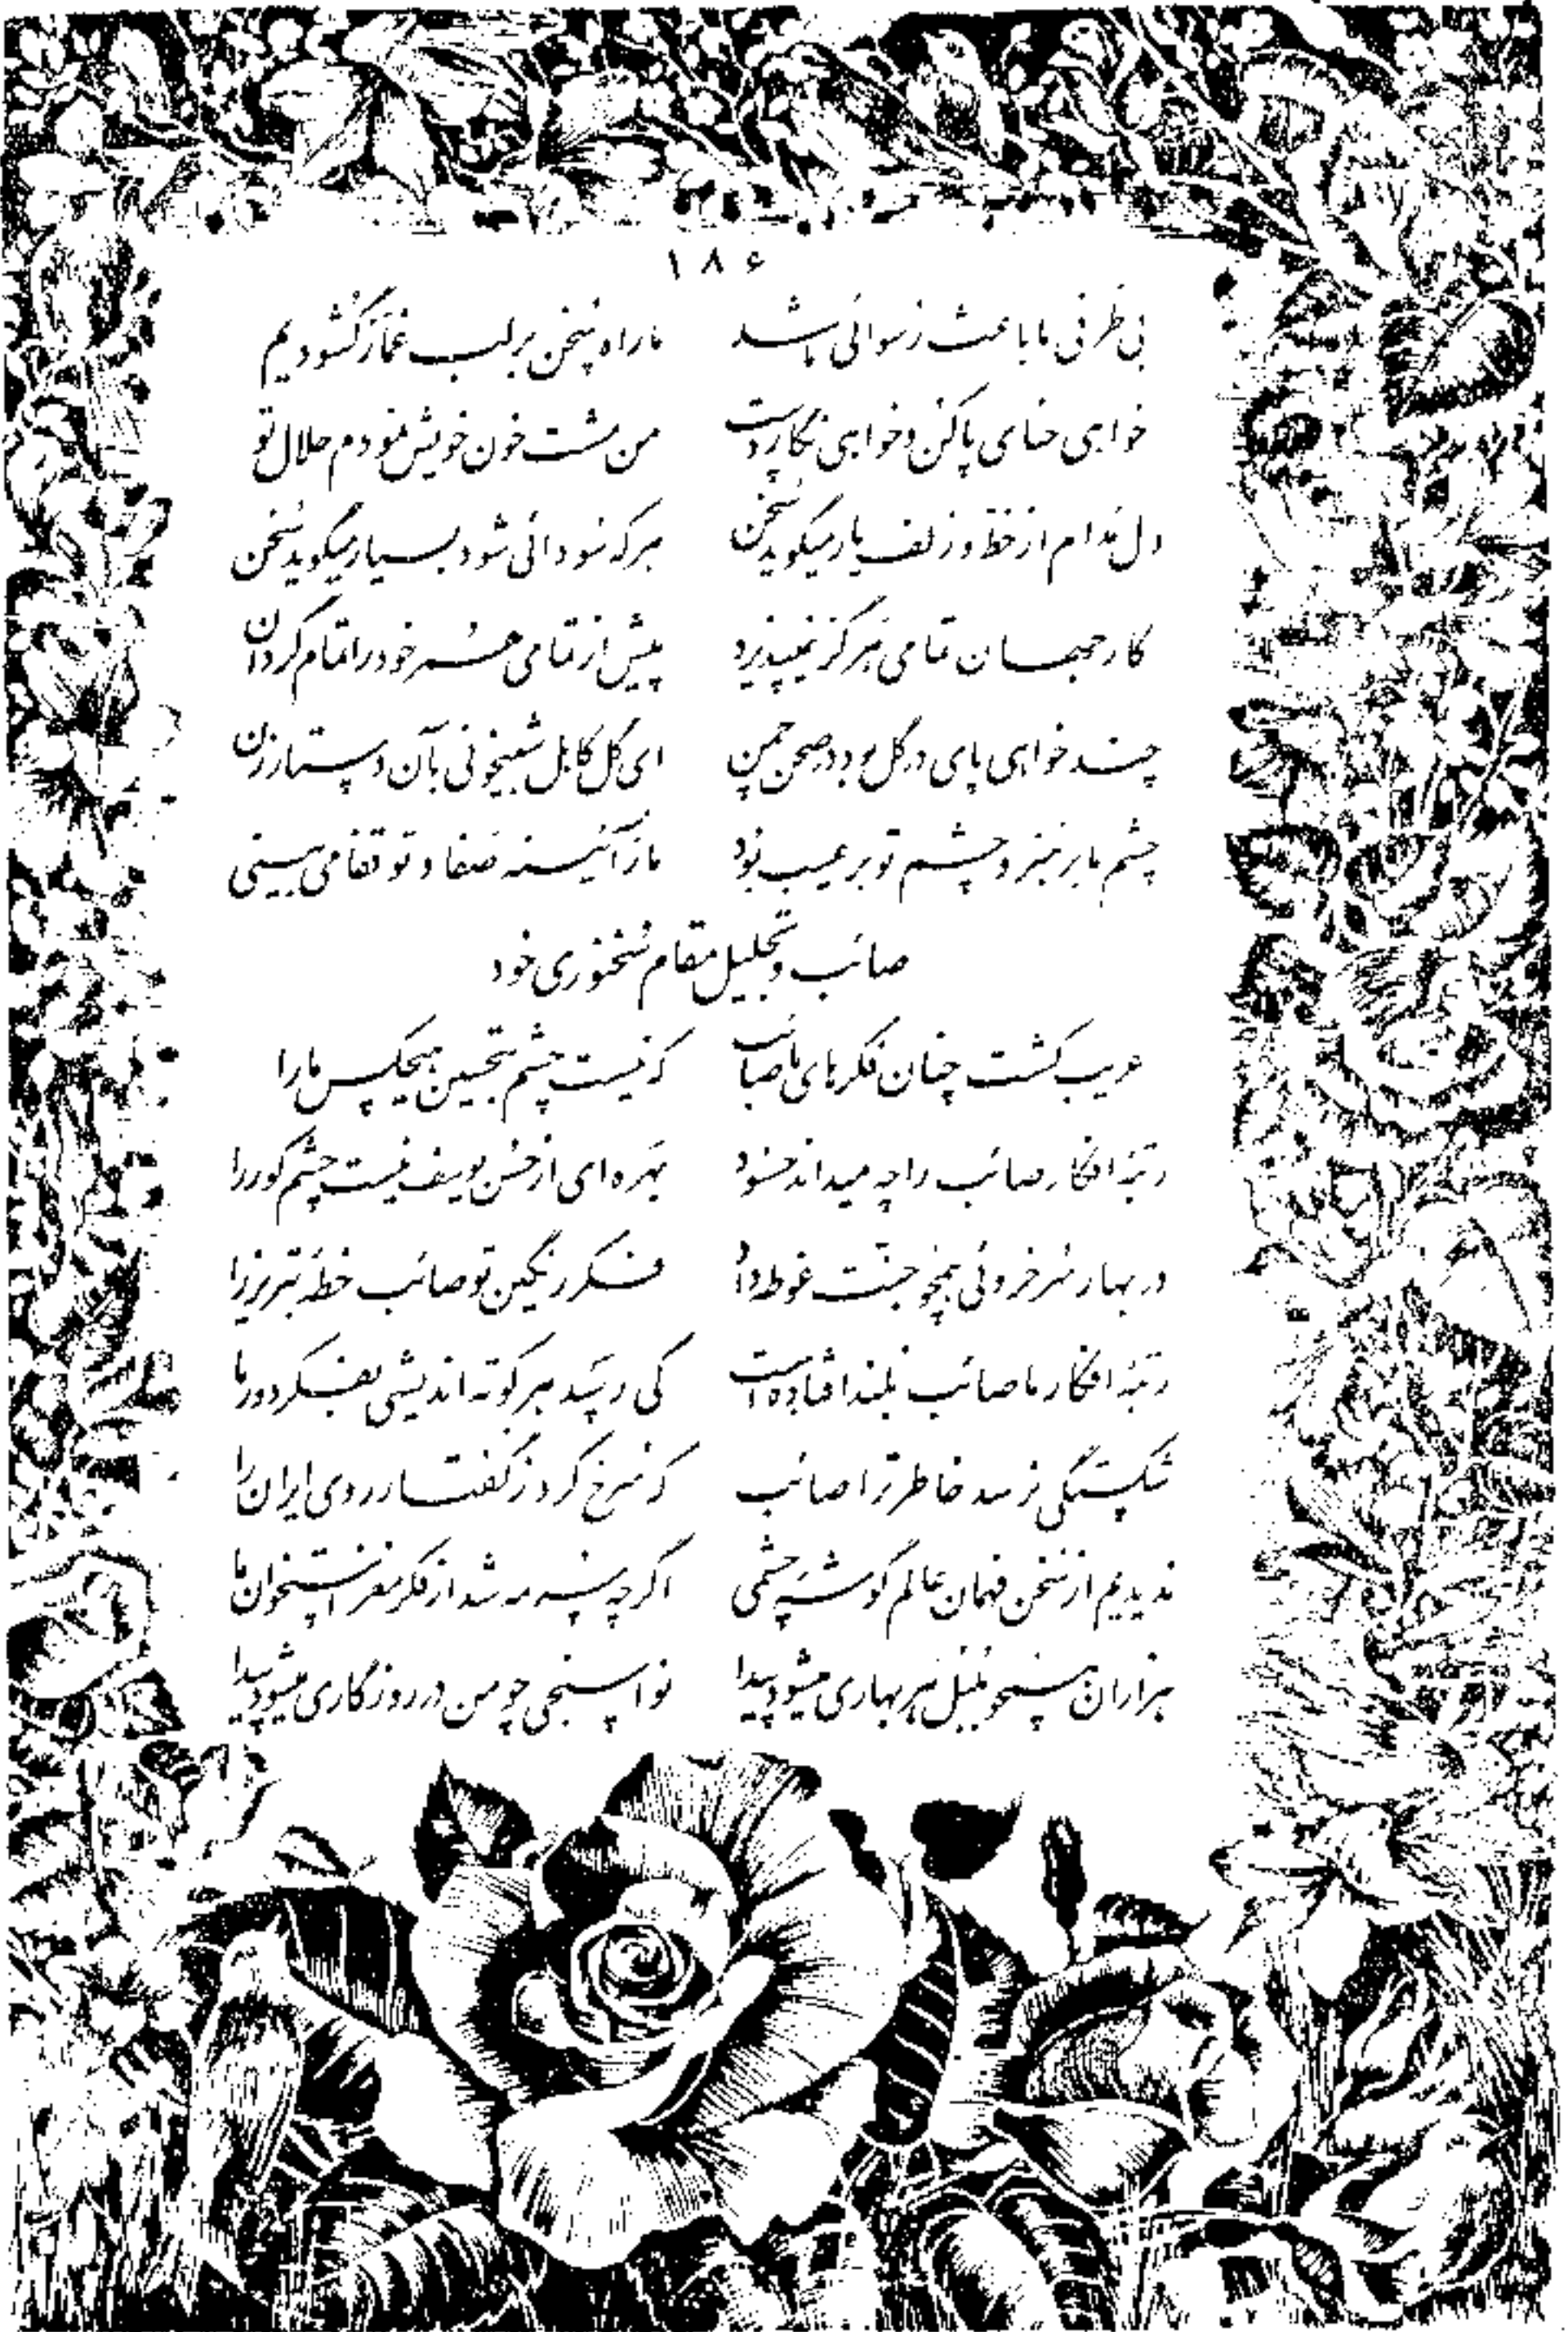 ۱۸۶
بی ظرفی ما باعث رسوائی ما شد ما راه سخن بر لب غماز گشودیم
خواهی حنای پا کن و خواهی نگار دست من مشت خون خویش نمودم حلال تو
دل مدام از خط و زلف یار میگوید سخن هر که سودائی شود بسیار میگوید سخن
کار جهان تمامی هرگز نمیپذیرد پیش از تمامی عمر خود را تمام گردان
چند خواهی پای در گل بود در صحن چمن ای گل کابل شبیخونی بآن دستار زن
چشم ما بر هنر و چشم تو بر عیب بود ما ز آئینه صفا و تو قفا می بینی
صائب و تجلیل مقام سخنوری خود
غریب گشت چنان فکرهای ما صائب که نیست چشم بتحسین هیچکس ما را
رتبهٔ افکار صائب را چه میداند حسود بهره ای از حسن یوسف نیست چشم کور را
در بهار سرخروئی همچو جنّت غوطه داد فکر رنگین تو صائب خطهٔ تبریز را
رتبهٔ افکار ما صائب بلند افتاده است کی رسد هر کوته اندیشی بفکر دور ما
شکستگی نرسد خاطر ترا صائب که سرخ کرد ز گفتار روی ایران را
ندیدیم از سخن فهمان عالم گوشهٔ چشمی اگر چه سرمه شد از فکر مغز استخوان ما
هزاران همچو بلبل هر بهاری میشود پیدا نواسنجی چو من در روزگاری میشود پیدا